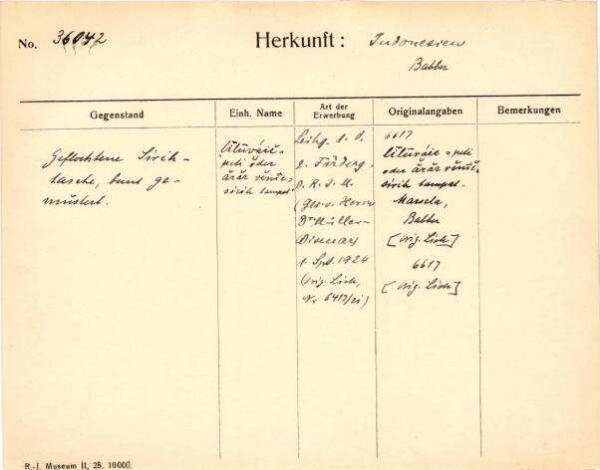 No. 36042
Herkunft: Indonesien
Babber
Gegenstand
Einh. Name
Art der Erwerbung
Originalangaben
Bemerkungen
Geflochtene Sirih-
tasche, bunt ge-
mustert.
peti oder
sirih tampat
Leihg. d. V.
z. Förderg.
d. R. J. M.
(Ges. v. Herrn
Dr Müller-
Wismar)
1. Spt. 1924
(orig. Liste,
Nr. 6417/21)
6617
oder
sirih tampat.
Marsela,
Babber
[orig. Liste]
6617
[orig. Liste]
R.-J. Museum II, 28. 10000.